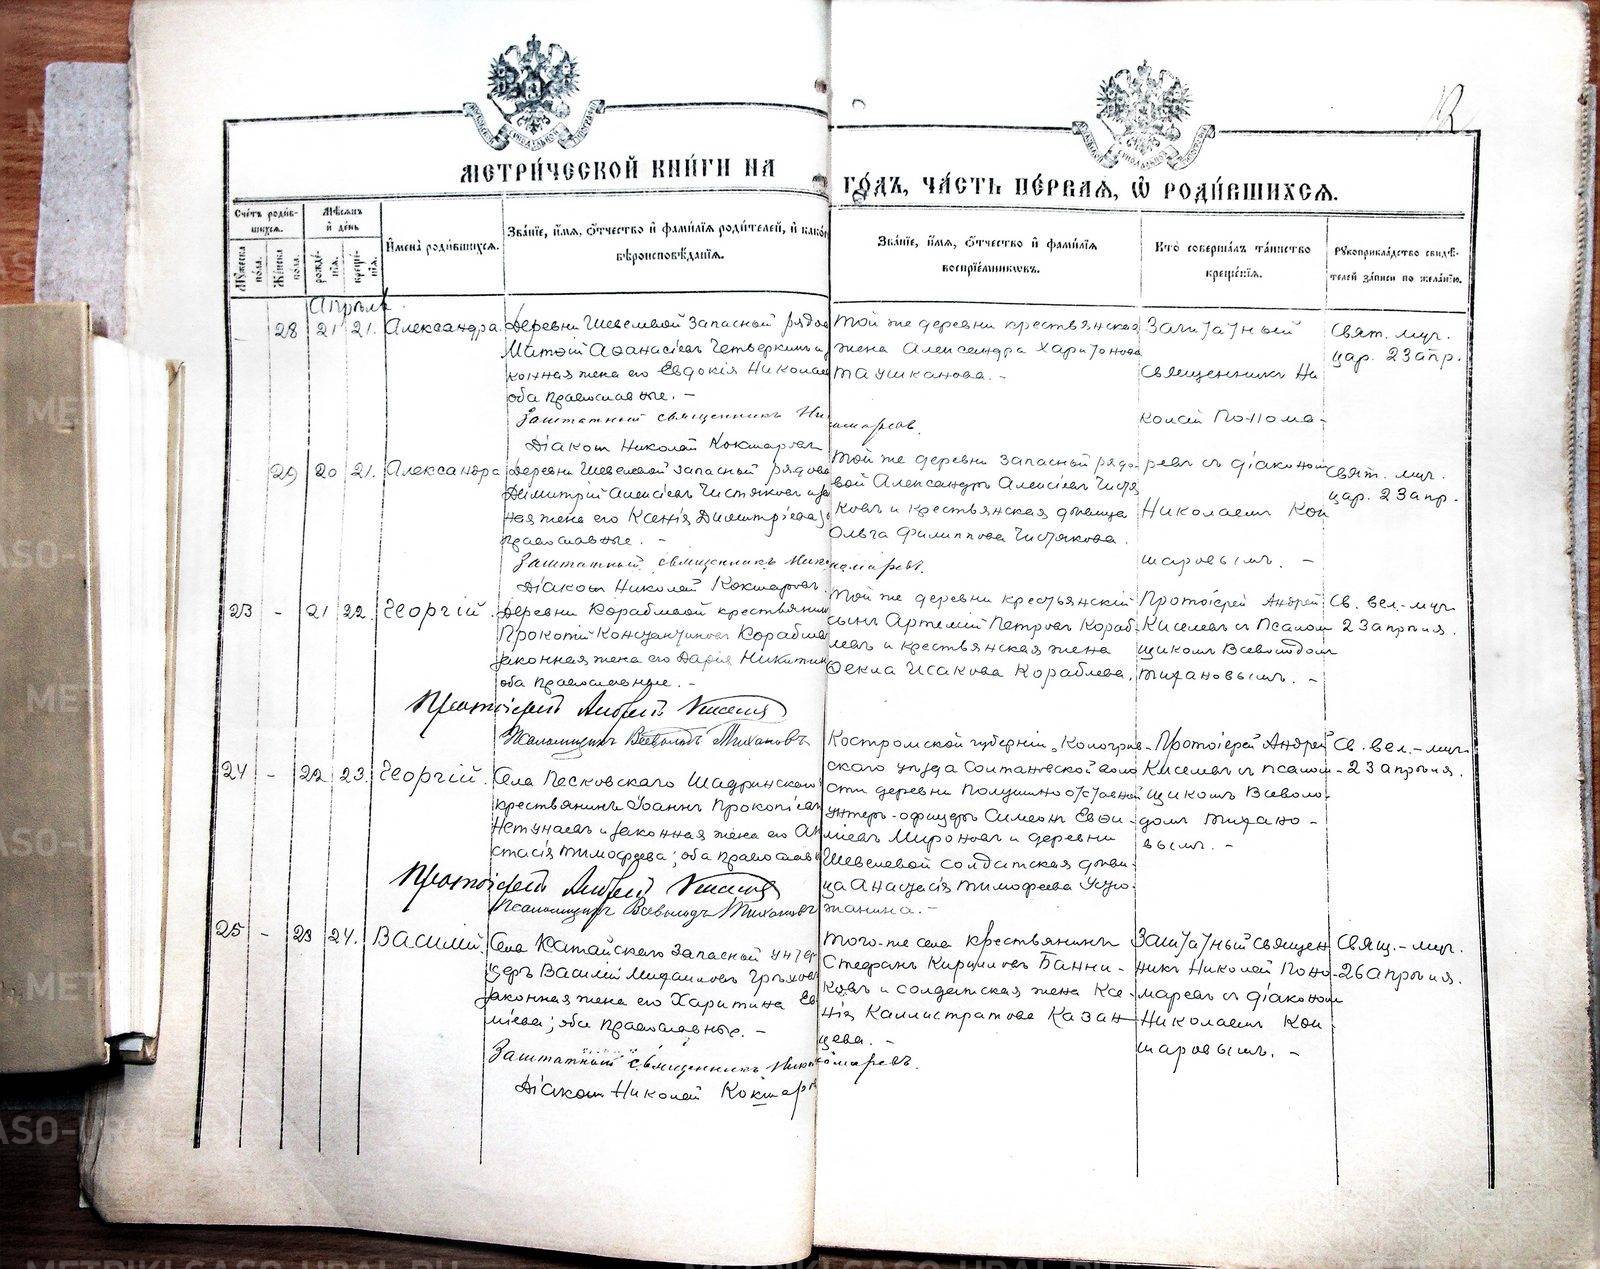 12
МЕТРИ́ЧЕСКОЙ КНИ́ГИ НА ГО́ДЪ, ЧА́СТЬ ПЕ́РВАЯ, Ѡ РОДИ́ВШИХСЯ.
Сче́тъ роди́в-
шихся.
Му́жеска по́ла.
Же́нска по́ла.
Мѣ́сяцъ
и҆ де́нь
рожде́нїя.
креще́нїя.
И҆мена̀ роди́вшихся.
Зва́нїе, и҆́мя, ѻ҆́тчество и҆ фами́лїя роди́телей, и҆ како́го
вѣроисповѣ́данїя.
Зва́нїе, и҆́мя, ѻ҆́тчество и҆ фами́лїя
воспрїе́мниковъ.
Кто̀ соверша́лъ та́инство
креще́нїя.
Рукоприкла́дство свидѣ́-
телей за́писи по жела́нїю.
Апрѣль
28 21 21. Александра.
Деревни Шевелевой запасный рядов
Матѳій Аѳанасіевъ Четверкинъ и
конная жена его Евдокія Николае
оба православные. –
Заштатный священникъ Ни
Діаконъ Николай Кокшаровъ
той же деревни крестьянская
жена Александра Харитонова
Таушканова. –
омаревъ.
Заштатный
Священникъ Ни
колай Понома-
ревъ съ діакономъ
Николаемъ Кок
шаровымъ. –
Свят. муч.
цар. 23 апр.
29 20 21. Александра
Деревни Шевелевой запасный рядово
Димитрій Алексіевъ Чистяковъ и за
ная жена его Ксенія Димитріева;
православные. –
Заштатный священникъ Нико
Діаконъ Николай Кокшаровъ.
той же деревни запасный рядо-
вой Александръ Алексіевъ Чистя
ковъ и крестьянская дѣвица
Ольга Филиппова Чистякова.
номаревъ.
Свят. муч.
цар. 23 апр.
23 - 21 22. Георгій.
Деревни Кораблевой крестьянинъ
Прокопій Константиновъ Корабле
законная жена его Дарія Никитин
оба православные. –
Протоіерей Андрей Киселевъ
Псаломщикъ Всеволодъ Тихановъ
той же деревни крестьянскій
сынъ Артемій Петровъ Кораб-
левъ и крестьянская жена
Ѳекла Исакова Кораблева.
Протоіерей Андрей
Киселевъ съ Псалом
щикомъ Всеволодомъ
Тихановымъ. –
Св. вел.-муч.
23 апрѣля.
24 - 22 23. Георгій.
Села Песковскаго Шадринскаго
крестьянинъ Іоаннъ Прокопіевъ
Нетунаевъ и законная жена его Ан
стасія Тимофеева; оба православн
Протоіерей Андрей Киселевъ
Псаломщикъ Всеволодъ Тихановъ
Костромской губерніи, Кологрив-
скаго уѣзда Солтановской воло
сти деревни Полушино отставной
унтеръ-офицеръ Симеонъ Евѳи-
міевъ Мироновъ и деревни
Шевелевой солдатская дѣви-
ца Анастасія Тимофеева Устю-
жанина. –
Протоіерей Андрей
Киселевъ съ псалом-
щикомъ Всеволо-
домъ Тихано-
вымъ. –
Св. вел.-муч.
23 апрѣля.
25 - 23 24. Василій.
Села Катайскаго запасной унтер
церъ Василій Михаиловъ Грѣхов
законная жена его Харитина Ев
міева; оба православные. –
Заштатный священникъ Нико
Діаконъ Николай Кокшаро
того-же села крестьянинъ
Стефанъ Кирилловъ Банни-
ковъ и солдатская жена Ксе-
нія Каллистратова Казан-
цева. –
номаревъ.
Заштатный священ
никъ Николай Поно-
маревъ съ діакономъ
Николаемъ Кок
шаровымъ. –
Свящ.-муч.
26 апрѣля.